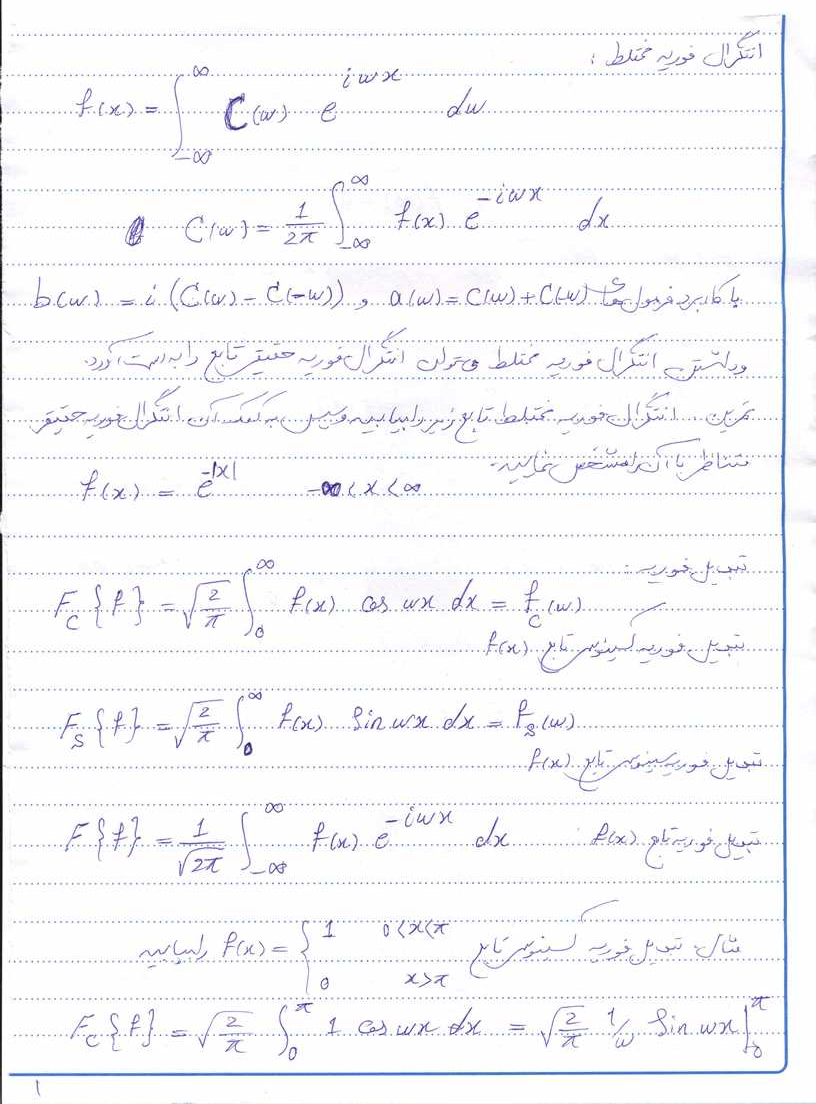 انتگرال فوریه مختلط :
f(x) = ∫_{-∞}^{∞} C(w) e^{iwx} dw
C(w) = 1/2π ∫_{-∞}^{∞} f(x) e^{-iwx} dx
با کاربرد فرمول های a(w) = C(w) + C(-w) و b(w) = i (C(w) - C(-w))
و داشتن انتگرال فوریه مختلط می توان انتگرال فوریه حقیقی تابع را به دست آورد.
تمرین . انتگرال فوریه مختلط تابع زیر را بیابید و سپس به کمک آن انتگرال فوریه حقیقی
متناظر با آن را مشخص نمایید.
f(x) = e^{-|x|} -∞ < x < ∞
تبدیل فوریه :
F_c {f} = √(2/π) ∫_0^∞ f(x) cos wx dx = f_c(w)
تبدیل فوریه کسینوسی تابع f(x)
F_s {f} = √(2/π) ∫_0^∞ f(x) Sin wx dx = f_s(w)
تبدیل فوریه سینوسی تابع f(x)
تبدیل فوریه تابع f(x) F{f} = 1/√(2π) ∫_{-∞}^{∞} f(x) e^{-iwx} dx
مثال. تبدیل فوریه کسینوسی تابع f(x) = { 1 0<x<π ; 0 x>π را بیابید
F_c {f} = √(2/π) ∫_0^π 1 cos wx dx = √(2/π) 1/w Sin wx |_0^π
۱